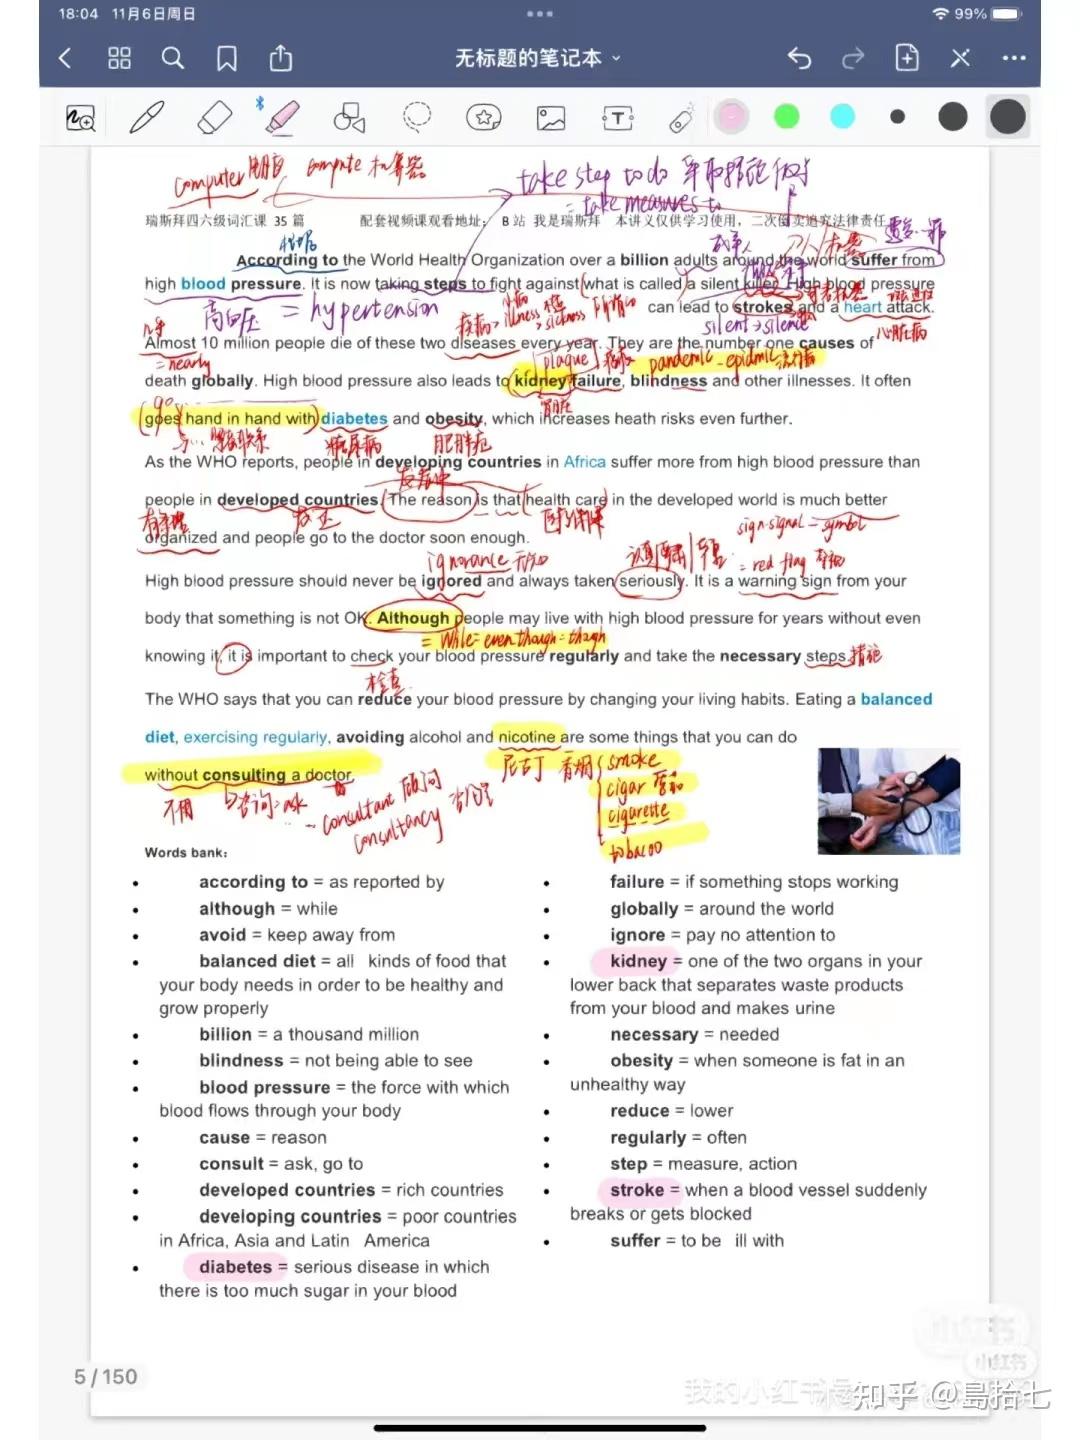 18:04 11月6日周日
99%
无标题的笔记本
computer 电脑 compute 计算器
take step to do 采取措施做
= take measures to
瑞斯拜四六级词汇课 35 篇 配套视频课观看地址: B 站 我是瑞斯拜 本讲义仅供学习使用,二次倒卖追究法律责任
According to the World Health Organization over a billion adults around the world suffer from
high blood pressure. It is now taking steps to fight against what is called a silent killer. High blood pressure
can lead to strokes and a heart attack.
高血压 = hypertension
疾病 > illness > sickness
silent > silence
心脏病
Almost 10 million people die of these two diseases every year. They are the number one causes of
= nearly
plague
pandemic - epidmic 流行病
death globally. High blood pressure also leads to kidney failure, blindness and other illnesses. It often
肾脏
goes hand in hand with diabetes and obesity, which increases heath risks even further.
糖尿病 肥胖症
As the WHO reports, people in developing countries in Africa suffer more from high blood pressure than
发展中
people in developed countries. The reason is that health care in the developed world is much better
有条理 发达
sign-signal = symbol
organized and people go to the doctor soon enough.
ignorance 无知
= red flag
High blood pressure should never be ignored and always taken seriously. It is a warning sign from your
body that something is not OK. Although people may live with high blood pressure for years without even
= While = even though = though
knowing it, it is important to check your blood pressure regularly and take the necessary steps. 措施
检查
The WHO says that you can reduce your blood pressure by changing your living habits. Eating a balanced
diet, exercising regularly, avoiding alcohol and nicotine are some things that you can do
尼古丁 香烟 smoke
without consulting a doctor.
cigar 雪茄
不用 咨询 = ask
consultant 顾问
cigarette
consultancy
tobacoo
Words bank:
according to = as reported by
although = while
avoid = keep away from
balanced diet = all kinds of food that
your body needs in order to be healthy and
grow properly
billion = a thousand million
blindness = not being able to see
blood pressure = the force with which
blood flows through your body
cause = reason
consult = ask, go to
developed countries = rich countries
developing countries = poor countries
in Africa, Asia and Latin America
diabetes = serious disease in which
there is too much sugar in your blood
failure = if something stops working
globally = around the world
ignore = pay no attention to
kidney = one of the two organs in your
lower back that separates waste products
from your blood and makes urine
necessary = needed
obesity = when someone is fat in an
unhealthy way
reduce = lower
regularly = often
step = measure, action
stroke = when a blood vessel suddenly
breaks or gets blocked
suffer = to be ill with
5 / 150
小红书
小红书
知乎 @島拾七